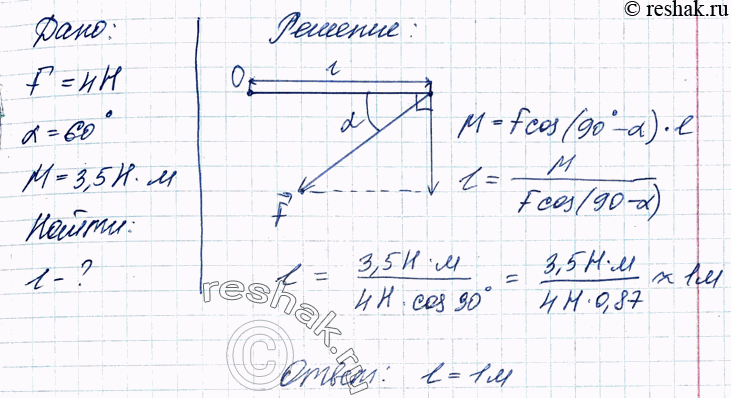 © reshak.ru
Дано:
F = 4Н
α = 60°
М = 3,5Н·м
Найти:
l - ?
Решение:
O
l
α
F
M = Fcos(90°-α)·l
l = M / Fcos(90-α)
l = 3,5Н·м / 4Н·cos90° = 3,5Н·м / 4Н·0,87 ≈ 1м
Ответ: l = 1м
reshak.ru
©